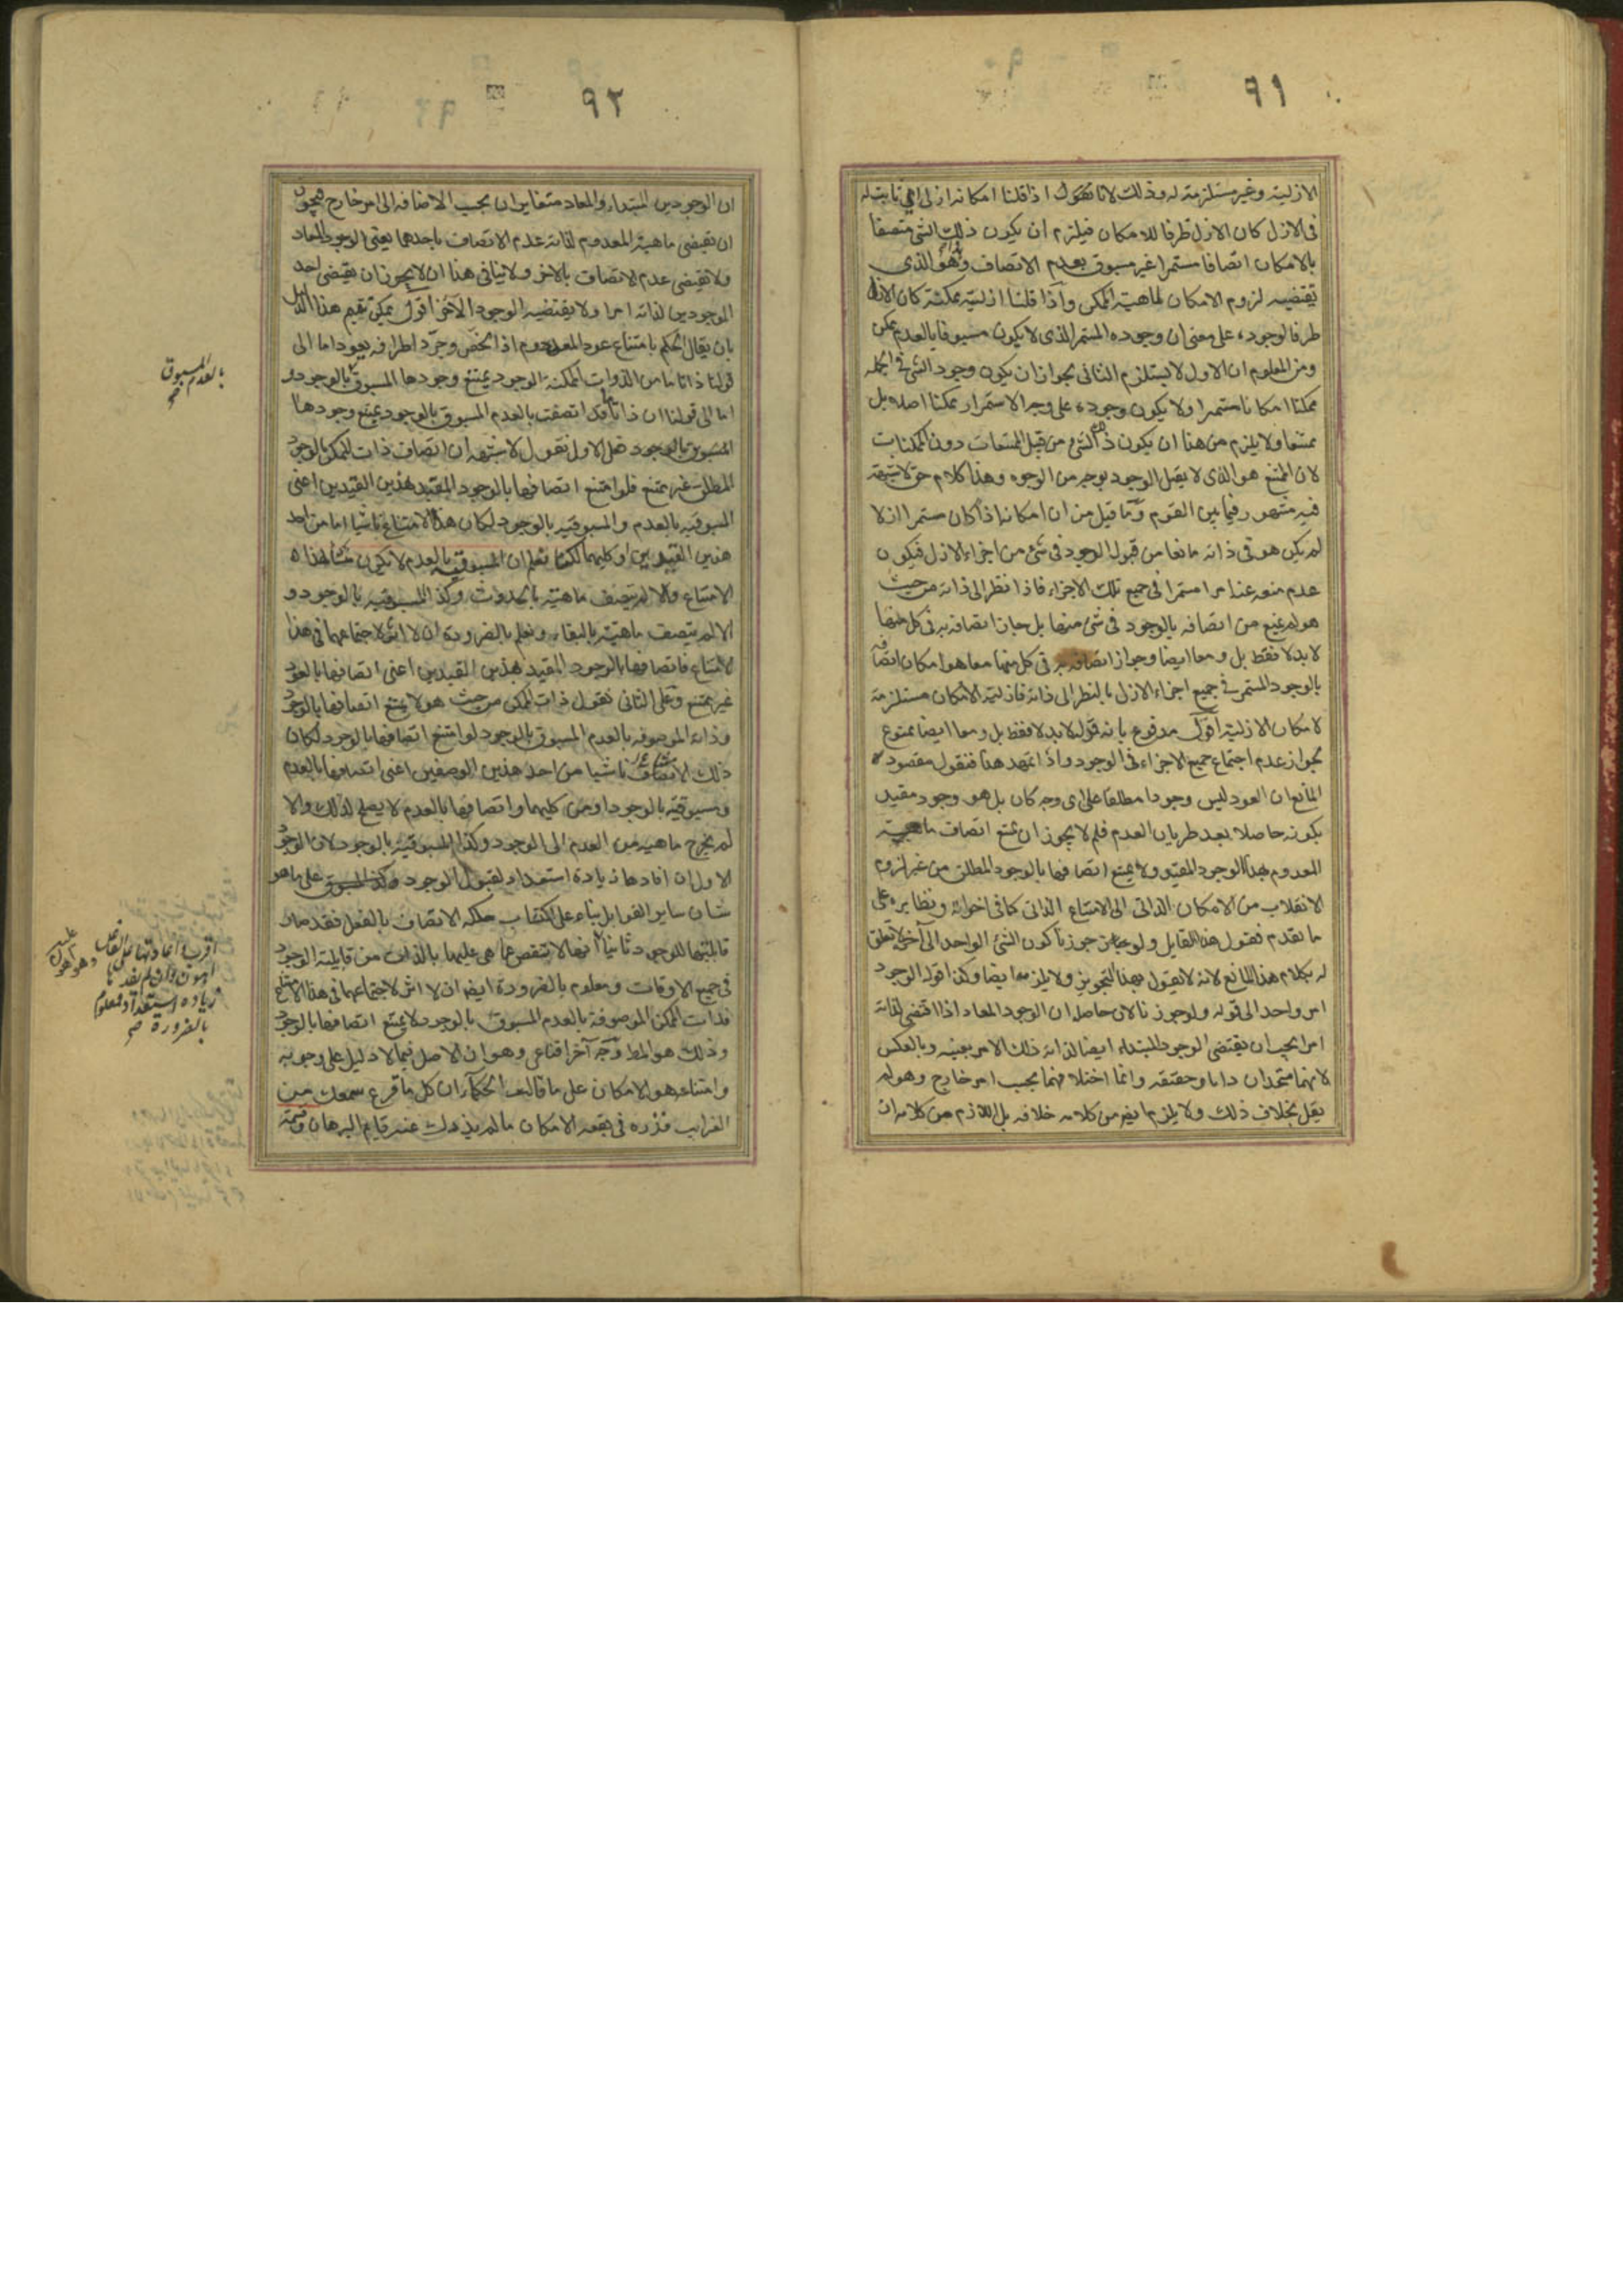 ٩١
الازلية وغير مستلزمة له وذلك لانا نقول اذا قلنا امكانه ازلى اى ثابت له
فى الازل كان الازل ظرفا للامكان فيلزم ان يكون ذلك الشئ متصفا
بالامكان اتصافا مستمرا غير مسبوق بعدم الاتصاف وهو الذى
يقتضيه لزوم الامكان لماهية الممكن واذا قلنا ازليته ممكنة كان الازل
ظرفا لوجوده على معنى ان وجوده المستمر الذى لا يكون مسبوقا بالعدم ممكن
ومن المعلوم ان الاول لا يستلزم الثانى لجواز ان يكون وجود الشئ فى الجملة
ممكنا امكانا مستمرا ولا يكون وجوده على وجه الاستمرار ممكنا اصلا بل
ممتنعا ولا يلزم من هذا ان يكون ذلك الشئ من قبيل الممتنعات دون الممكنات
لان الممتنع هو الذى لا يقبل الوجود بوجه من الوجوه وهذا كلام حق لا شبهة
فيه مشهور فيما بين القوم وما قيل من ان امكانه اذا كان مستمرا ازلا
لم يكن هو فى ذاته مانعا من قبول الوجود فى شئ من اجزاء الازل فيكون
عدم منعه عنه امرا مستمرا فى جميع تلك الاجزاء فاذا نظر الى ذاته من حيث
هو لم يمنع من اتصافه بالوجود فى شئ منها بل جاز اتصافه به فى كل منها
لا بدلا فقط بل ومعا ايضا وجواز اتصافه به فى كل منها معا هو امكان اتصافه
بالوجود المستمر فى جميع اجزاء الازل بالنظر الى ذاته فازلية الامكان مستلزمة
لامكان الازلية اقول مدفوع بانه قوله لا بدلا فقط بل ومعا ايضا ممنوع
لجواز عدم اجتماع جميع الاجزاء فى الوجود واذا تمهد هذا فنقول مقصود
المانع ان العود ليس وجودا مطلقا على اى وجه كان بل هو وجود مقيد
بكونه حاصلا بعد طريان العدم فلم لا يجوز ان يمتنع اتصاف ماهية
المعدوم بهذا الوجود المقيد ولا يمتنع اتصافها بالوجود المطلق من غير لزوم
الانقلاب من الامكان الذاتى الى الامتناع الذاتى كما فى اخواته ونظايره على
ما تقدم فقول هذا القايل ولو جوزنا كون الشئ الواحد الى آخره لا تعلق
له بكلام هذا المانع لانه لا يقول بهذا التجويز ولا يلزمه ايضا وكذا قوله الوجود
امر واحد الى قوله ولو جوزنا لان حاصله ان الوجود المعاد اذا اقتضى لذاته
امرا يجب ان يقتضى الوجود المبتداء ايضا لذاته ذلك الامر بعينه وبالعكس
لانهما متحدان ذاتا وحقيقة وانما اختلافهما بحسب امر خارج وهو لم
يقل بخلاف ذلك ولا يلزم ايضا من كلامه خلافه بل اللازم من كلامه ان
٩٢
ان الوجودين المبتداء والمعاد متغايران بحسب الاضافه الى امر خارج فيجوز
ان تقتضى ماهية المعدوم لذاته عدم الاتصاف باحدهما يعنى الوجود المعاد
ولا تقتضى عدم الاتصاف بالآخر ولا ينافى هذا ان لا يجوز ان يقتضى احد
الوجودين لذاته امرا ولا يقتضيه الوجود الآخر اقول يمكن تتميم هذا الدليل
بان يقال الحكم بامتناع عود المعدوم اذا لخص وجرد اطرافه يعود اما الى
قولنا ذاتا ما من الذوات الممكنة الوجود يمتنع وجودها المسبوق بالوجود و
اما الى قولنا ان ذاتا ما قد اتصفت بالعدم المسبوق بالوجود يمتنع وجودها
المسبوق بالوجود فعلى الاول نقول لا شبهة ان اتصاف ذات الممكن بالوجود
المطلق غير ممتنع فلو امتنع اتصافها بالوجود المقيد بهذين القيدين اعنى
المسبوقية بالعدم والمسبوقية بالوجود لكان هذا الامتناع ناشيا اما من احد
هذين القيدين او كليهما لكنا نعلم ان المسبوقية بالعدم لا يكون منشأ لهذا
الامتناع والا لم يتصف ماهية بالحدوث وكذا المسبوقية بالوجود و
الا لم يتصف ماهية بالبقاء ونعلم بالضرورة ان لا اثر لاجتماعهما فى هذا
الامتناع فاتصافها بالوجود المقيد بهذين القيدين اعنى اتصافها بالعود
غير ممتنع وعلى الثانى نقول ذات الممكن من حيث هو لا يمتنع اتصافها بالوجود
وذاته الموصوفه بالعدم المسبوق بالوجود لو امتنع اتصافها بالوجود لكان
ذلك الامتناع ناشيا من احد هذين الوصفين اعنى اتصافها بالعدم
ومسبوقيته بالوجود او من كليهما واتصافها بالعدم لا يصلح لذلك والا
لم يخرج ماهية من العدم الى الوجود وكذا المسبوقية بالوجود لان الوجود
الاول ان افادها زيادة استعداد لقبول الوجود على ما هو
شان ساير القوابل بناء على اكتساب ملكة الاتصاف بالفعل فقد صار
قابليتها للوجود ثانيا انها لا تنقص عما هى عليها بالذات من قابلية الوجود
فى جميع الاوقات ومعلوم بالضرورة ايضا ان لا اثر لاجتماعهما فى هذا الامتناع
فذات الممكن الموصوفة بالعدم المسبوق بالوجود لا يمتنع اتصافها بالوجود
وذلك هو المط وجه آخر اقناعى وهو ان الاصل فيما لا دليل على وجوبه
وامتناعه هو الامكان على ما قالت الحكماء ان كل ما قرع سمعك من
الغرايب فذره فى بقعة الامكان ما لم يذدك عنه قايم البرهان
بالعدم المسبوق
صح
اقرب اعادتها على الفاعل
اهون وان لم يفدها
زيادة استعداد فمعلوم
بالضرورة صح